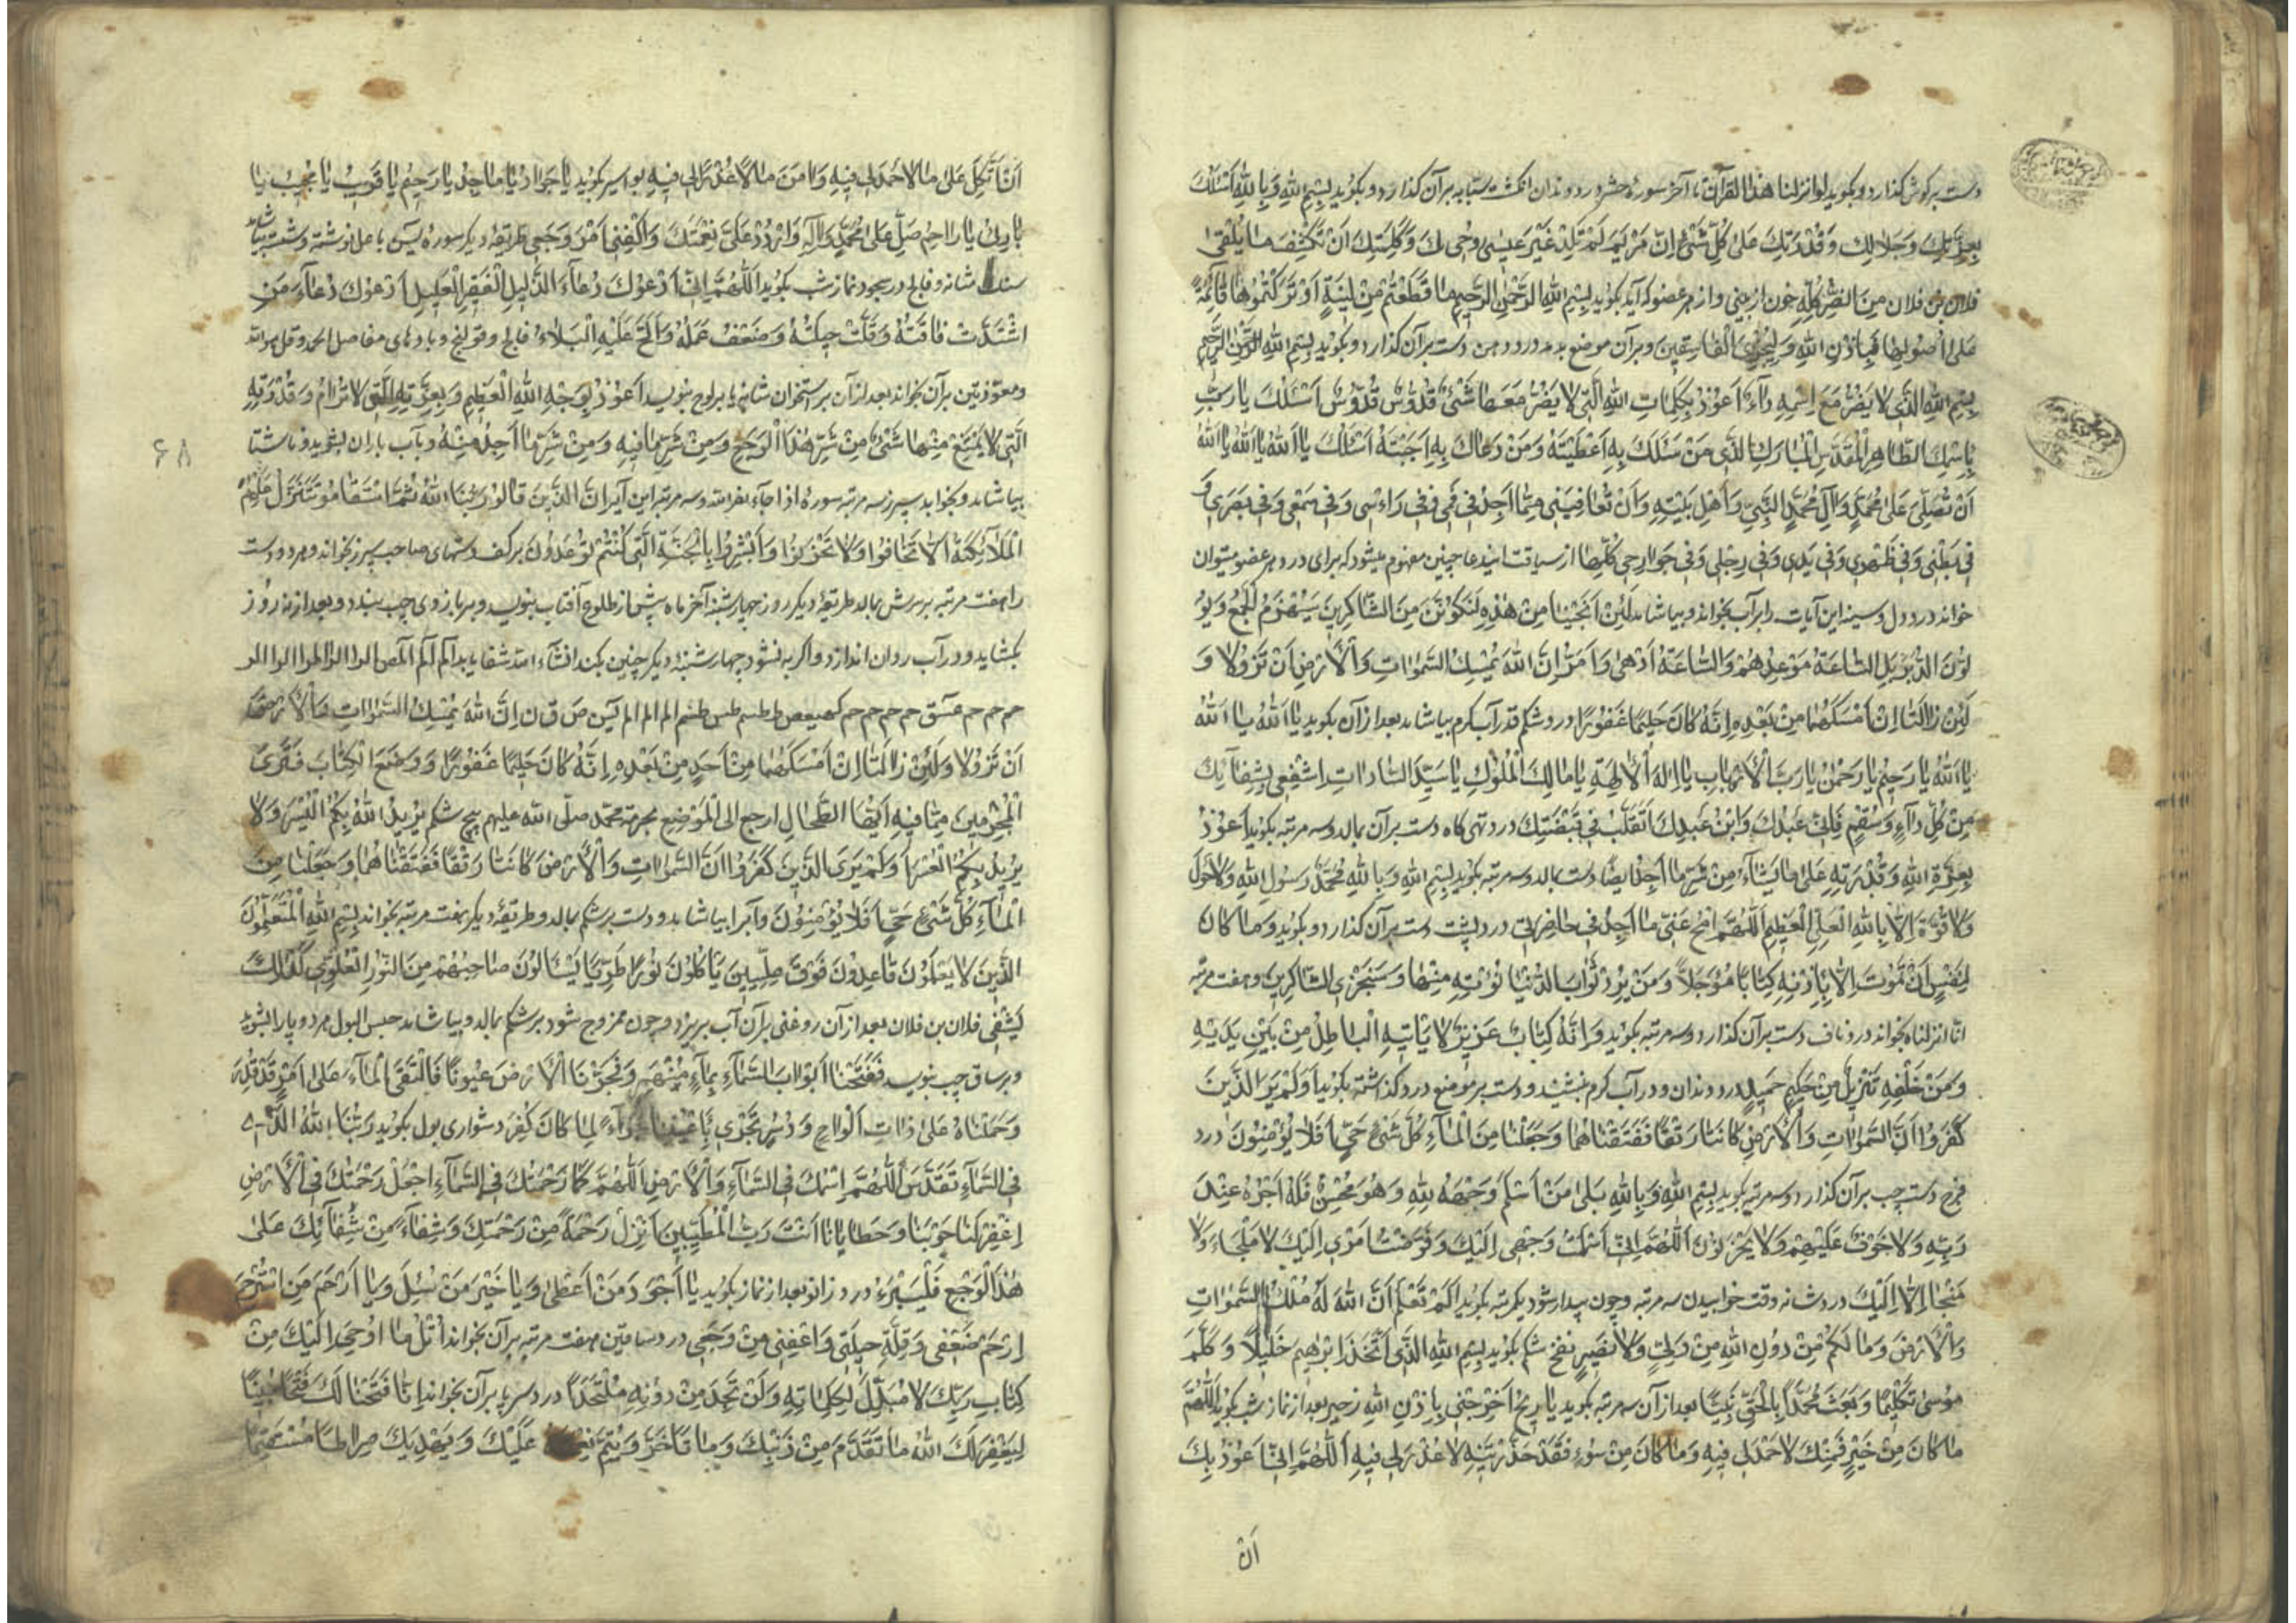 دست بر کوش کذارد و بکوید لو انزلنا هذا القرآن تا آخر سورهٔ حشر درد دندان انکشت سبابه بر آن کذارد و بکوید بِسْمِ اللهِ وَبِاللهِ اَسْئَلُكَ
بِعِزَّتِكَ وَجَلالِكَ وَقُدْرَتِكَ عَلىٰ كُلِّ شَیْءٍ اِنَّ مَرْيَمَ لَمْ تَلِدْ غَيْرَ عيسىٰ رُوحِكَ وَكَلِمَتِكَ اَنْ تَكْشِفَ مٰا يَلْقىٰ
فلان بن فلان مِنَ الضُّرِّ كُلِّهِ خون از بینی و از هر عضو که آید بکوید بِسْمِ اللهِ الرَّحْمٰنِ الرَّحيمِ مٰا قَطَعْتُمْ مِنْ لينَةٍ اَوْ تَرَكْتُمُوهٰا قٰائِمَةً
عَلىٰ اُصُولِهٰا فَبِاِذْنِ اللهِ وَلِيُخْزِيَ الْفٰاسِقينَ و بر آن موضع بدمد درد دهن دست بر آن کذارد و بکوید بِسْمِ اللهِ الرَّحْمٰنِ الرَّحيمِ
بِسْمِ اللهِ الَّذي لا يَضُرُّ مَعَ اِسْمِهِ دٰاءٌ اَعُوذُ بِكَلِمٰاتِ اللهِ الَّتي لا يَضُرُّ مَعَهٰا شَیْءٌ قُدُّوسٌ قُدُّوسٌ قُدُّوسٌ اَسْئَلُكَ يٰا رَبِّ
بِاسْمِكَ الطّٰاهِرِ الْمُقَدَّسِ الْمُبٰارَكِ الَّذي مَنْ سَئَلَكَ بِهِ اَعْطَيْتَهُ وَمَنْ دَعٰاكَ بِهِ اَجَبْتَهُ اَسْئَلُكَ يٰا اَللهُ يٰا اَللهُ يٰا اَللهُ
اَنْ تُصَلِّيَ عَلىٰ مُحَمَّدٍ وَاٰلِ مُحَمَّدٍ النَّبِيِّ وَاَهْلِ بَيْتِهِ وَاَنْ تُعٰافِيَني مِمّٰا اَجِدُ في فَمي وَفي رَاْسي وَفي سَمْعي وَفي بَصَري وَ
في بَطْني وَفي ظَهْري وَفي يَدي وَفي رِجْلي وَفي جَوٰارِحي كُلِّهٰا از سیاقت ایندعا چنین مفهوم میشود که برای درد هر عضو میتوان
خواند درد دل و سینه این آیات را بر آب بخواند و بیاشامد لَئِنْ اَنْجَيْتَنٰا مِنْ هٰذِهِ لَنَكُونَنَّ مِنَ الشّٰاكِرينَ سَيُهْزَمُ الْجَمْعُ وَيُوَ
لُّونَ الدُّبُرَ بَلِ السّٰاعَةُ مَوْعِدُهُمْ وَالسّٰاعَةُ اَدْهىٰ وَاَمَرُّ اِنَّ اللهَ يُمْسِكُ السَّمٰوٰاتِ وَالْاَرْضَ اَنْ تَزُولا وَ
لَئِنْ زٰالَتٰا اِنْ اَمْسَكَهُمٰا مِنْ بَعْدِهِ اِنَّهُ كٰانَ حَليمًا غَفُورًا درد شکم قدر آب کرم بیاشامد بعد از آن بکوید يٰا اَللهُ يٰا اَللهُ
يٰا اَللهُ يٰا رَحيمُ يٰا رَحْمٰنُ يٰا رَبَّ الْاَرْبٰابِ يٰا اِلٰهَ الْاٰلِهَةِ يٰا مٰالِكَ الْمُلُوكِ يٰا سَيِّدَ السّٰادٰاتِ اشْفِني بِشِفٰائِكَ
مِنْ كُلِّ دٰاءٍ وَسُقْمٍ فَاِنّي عَبْدُكَ وَابْنُ عَبْدِكَ اَتَقَلَّبُ في قَبْضَتِكَ درد تهی کاه دست بر آن بمالد و سه مرتبه بکوید اَعُوذُ
بِعِزَّةِ اللهِ وَقُدْرَتِهِ عَلىٰ مٰا يَشٰاءُ مِنْ شَرِّ مٰا اَجِدُ ایضًا دست بمالد و سه مرتبه بکوید بِسْمِ اللهِ وَبِاللهِ مُحَمَّدٌ رَسُولُ اللهِ وَلا حَوْلَ
وَلا قُوَّةَ اِلّٰا بِاللهِ الْعَلِيِّ الْعَظيمِ اَللّٰهُمَّ امْحُ عَنّي مٰا اَجِدُ في خٰاصِرَتي درد پشت دست بر آن کذارد و بکوید وَمٰا كٰانَ
لِنَفْسٍ اَنْ تَمُوتَ اِلّٰا بِاِذْنِهِ كِتٰابًا مُؤَجَّلاً وَمَنْ يُرِدْ ثَوٰابَ الدُّنْيٰا نُؤْتِهِ مِنْهٰا وَسَنَجْزِي الشّٰاكِرينَ و هفت مرتبه
انّا انزلناه بخواند درد ناف دست بر آن کذارد و سه مرتبه بکوید وَاِنَّهُ لَكِتٰابٌ عَزيزٌ لا يَاْتيهِ الْبٰاطِلُ مِنْ بَيْنِ يَدَيْهِ
وَمِنْ خَلْفِهِ تَنْزيلٌ مِنْ حَكيمٍ حَميدٍ درد دندان و در آب کرم بنشیند و دست بر موضع درد کذاشته بکوید اَوَلَمْ يَرَ الَّذينَ
كَفَرُوا اَنَّ السَّمٰوٰاتِ وَالْاَرْضَ كٰانَتٰا رَتْقًا فَفَتَقْنٰاهُمٰا وَجَعَلْنٰا مِنَ الْمٰاءِ كُلَّ شَیْءٍ حَيٍّ اَفَلا يُؤْمِنُونَ درد
فرج دست چپ بر آن کذارد و سه مرتبه بکوید بِسْمِ اللهِ وَبِاللهِ بَلىٰ مَنْ اَسْلَمَ وَجْهَهُ لِلّٰهِ وَهُوَ مُحْسِنٌ فَلَهُ اَجْرُهُ عِنْدَ
رَبِّهِ وَلا خَوْفٌ عَلَيْهِمْ وَلا يَحْزَنُونَ اَللّٰهُمَّ اِنّي اَسْلَمْتُ وَجْهي اِلَيْكَ وَفَوَّضْتُ اَمْري اِلَيْكَ لا مَلْجَاَ وَلا
مَنْجٰا اِلّٰا اِلَيْكَ درد شانه وقت خوابیدن سه مرتبه و چون بیدار شود یکمرتبه بکوید اَلَمْ تَعْلَمْ اَنَّ اللهَ لَهُ مُلْكُ السَّمٰوٰاتِ
وَالْاَرْضِ وَمٰا لَكُمْ مِنْ دُونِ اللهِ مِنْ وَلِيٍّ وَلا نَصيرٍ نفخ شکم بکوید بِسْمِ اللهِ الَّذي اتَّخَذَ اِبْرٰهيمَ خَليلاً وَكَلَّمَ
مُوسىٰ تَكْليمًا وَبَعَثَ مُحَمَّدًا بِالْحَقِّ نَبِيًّا بعد از آن سه مرتبه بکوید يٰا ريحُ اخْرُجي بِاِذْنِ اللهِ زحیر بعد از نماز شب بکوید اَللّٰهُمَّ
مٰا كٰانَ مِنْ خَيْرٍ فَمِنْكَ لا حَمْدَ لي فيهِ وَمٰا كٰانَ مِنْ سُوءٍ فَقَدْ حَذَّرْتَنيهِ لا عُذْرَ لي فيهِ اَللّٰهُمَّ اِنّي اَعُوذُ بِكَ
اَنْ
اَنْ اَتَّكِلَ عَلىٰ مٰا لا حَمْدَ لي فيهِ وَاٰمَنَ مٰا لا عُذْرَ لي فيهِ بواسیر بکوید يٰا جَوٰادُ يٰا مٰاجِدُ يٰا رَحيمُ يٰا قَريبُ يٰا مُجيبُ يٰا
بٰارِئُ يٰا رٰاحِمُ صَلِّ عَلىٰ مُحَمَّدٍ وَاٰلِهِ وَارْدُدْ عَلَيَّ نِعْمَتَكَ وَاكْفِني اَمْرَ وَجَعي طریقهٔ دیکر سوره یٰس با عسل نوشته و شسته بیاشامد
سنک مثانه و فالج در سجود نماز شب بکوید اَللّٰهُمَّ اِنّي اَدْعُوكَ دُعٰاءَ الذَّليلِ الْفَقيرِ الْعَليلِ اَدْعُوكَ دُعٰاءَ مَنِ
اشْتَدَّتْ فٰاقَتُهُ وَقَلَّتْ حيلَتُهُ وَضَعُفَ عَمَلُهُ وَاَلَحَّ عَلَيْهِ الْبَلاءُ فالج و قولنج و بادهای مفاصل الحمد و قل هو الله
و معوّذتین بر آن بخواند بعد از آن بر استخوان شانه یا بر لوح بنویسد اَعُوذُ بِوَجْهِ اللهِ الْعَظيمِ وَبِعِزَّتِهِ الَّتي لا تُرٰامُ وَقُدْرَتِهِ
الَّتي لا يَمْتَنِعُ مِنْهٰا شَیْءٌ مِنْ شَرِّ هٰذَا الْوَجَعِ وَمِنْ شَرِّ مٰا فيهِ وَمِنْ شَرِّ مٰا اَجِدُ مِنْهُ و بآب باران بشوید و ناشتا
۶۸
بیاشامد و بخوابد سپرز سه مرتبه سورهٔ اذا جاء نصر الله و سه مرتبه این آیه اِنَّ الَّذينَ قٰالُوا رَبُّنَا اللهُ ثُمَّ اسْتَقٰامُوا تَتَنَزَّلُ عَلَيْهِمُ
الْمَلائِكَةُ اَلّٰا تَخٰافُوا وَلا تَحْزَنُوا وَاَبْشِرُوا بِالْجَنَّةِ الَّتي كُنْتُمْ تُوعَدُونَ بر کف دستهای صاحب سپرز بخواند و هر دو دست
را هفت مرتبه بر سرش بمالد طریقهٔ دیکر روز چهارشنبه آخر ماه پیش از طلوع آفتاب بنویسد و بر بازوی چپ بندد و بعد از سه روز
بکشاید و در آب روان اندازد و اکر به نشود چهارشنبهٔ دیکر چنین بکند انشاء الله شفا یابد الم الم الم المص الر الر المر الر الر
حم حم حم عسق حم حم حم حم کهیعص طه طسم طس طسم الم الم الم یس ص ق ن اِنَّ اللهَ يُمْسِكُ السَّمٰوٰاتِ وَالْاَرْضَ
اَنْ تَزُولا وَلَئِنْ زٰالَتٰا اِنْ اَمْسَكَهُمٰا مِنْ اَحَدٍ مِنْ بَعْدِهِ اِنَّهُ كٰانَ حَليمًا غَفُورًا وَوُضِعَ الْكِتٰابُ فَتَرَى
الْمُجْرِمينَ مِمّٰا فيهِ اَيُّهَا الطِّحٰالِ ارجع الی الْمَوْضِعِ بحرمة محمّد صلّى الله عليهم پیچ شکم يُريدُ اللهُ بِكُمُ الْيُسْرَ وَلا
يُريدُ بِكُمُ الْعُسْرَ اَوَلَمْ يَرَى الَّذينَ كَفَرُوا اَنَّ السَّمٰوٰاتِ وَالْاَرْضَ كٰانَتٰا رَتْقًا فَفَتَقْنٰاهُمٰا وَجَعَلْنٰا مِنَ
الْمٰاءِ كُلَّ شَیْءٍ حَيٍّ اَفَلا يُؤْمِنُونَ و آبرا بیاشامد و دست بر شکم بمالد و طریقهٔ دیکر هفت مرتبه بخواند بِسْمِ اللهِ الْمُتَعَلِّمُونَ
الَّذينَ لا يَعْلَمُونَ قٰاعِدُونَ فَوْقَ عِلِّيّينَ يَاْكُلُونَ نُورًا طَرِيًّا يَسْئَلُونَ صٰاحِبُهُمْ مِنَ النُّورِ الْعُلْوِيِّ كَذٰلِكَ
يَشْفي فلان بن فلان بعد از آن روغنی بر آن آب بریزد و چون ممزوج شود بر شکم بمالد و بیاشامد حبس البول هر دو پا را بشوید
و بر ساق چپ بنویسد فَفَتَحْنٰا اَبْوٰابَ السَّمٰاءِ بِمٰاءٍ مُنْهَمِرٍ وَفَجَّرْنَا الْاَرْضَ عُيُونًا فَالْتَقَى الْمٰاءُ عَلىٰ اَمْرٍ قَدْ قُدِرَ
وَحَمَلْنٰاهُ عَلىٰ ذٰاتِ اَلْوٰاحٍ وَدُسُرٍ تَجْري بِاَعْيُنِنٰا جَزٰاءً لِمَنْ كٰانَ كُفِرَ دشواری بول بکوید رَبُّنَا اللهُ الَّذي
فِي السَّمٰاءِ تَقَدَّسَ اَللّٰهُمَّ اسْمُكَ فِي السَّمٰاءِ وَالْاَرْضِ اَللّٰهُمَّ كَمٰا رَحْمَتُكَ فِي السَّمٰاءِ اجْعَلْ رَحْمَتَكَ فِي الْاَرْضِ
اِغْفِرْ لَنٰا حَوْبَنٰا وَخَطٰايٰانٰا اَنْتَ رَبُّ الْمُطَيِّبينَ اَنْزِلْ رَحْمَةً مِنْ رَحْمَتِكَ وَشِفٰاءً مِنْ شِفٰائِكَ عَلىٰ
هٰذَا الْوَجَعِ فَلْيَبْرَءْ درد زانو بعد از نماز بکوید يٰا اَجْوَدَ مَنْ اَعْطىٰ وَيٰا خَيْرَ مَنْ سُئِلَ وَيٰا اَرْحَمَ مَنِ اسْتُرْحِمَ
اِرْحَمْ ضَعْفي وَقِلَّةَ حيلَتي وَاعْفِني مِنْ وَجَعي درد ساقین هفت مرتبه بر آن بخواند اُتْلُ مٰا اُوحِيَ اِلَيْكَ مِنْ
كِتٰابِ رَبِّكَ لا مُبَدِّلَ لِكَلِمٰاتِهِ وَلَنْ تَجِدَ مِنْ دُونِهِ مُلْتَحَدًا درد سر پا بر آن بخواند اِنّٰا فَتَحْنٰا لَكَ فَتْحًا مُبينًا
لِيَغْفِرَ لَكَ اللهُ مٰا تَقَدَّمَ مِنْ ذَنْبِكَ وَمٰا تَاَخَّرَ وَيُتِمَّ نِعْمَتَهُ عَلَيْكَ وَيَهْدِيَكَ صِرٰاطًا مُسْتَقيمًا